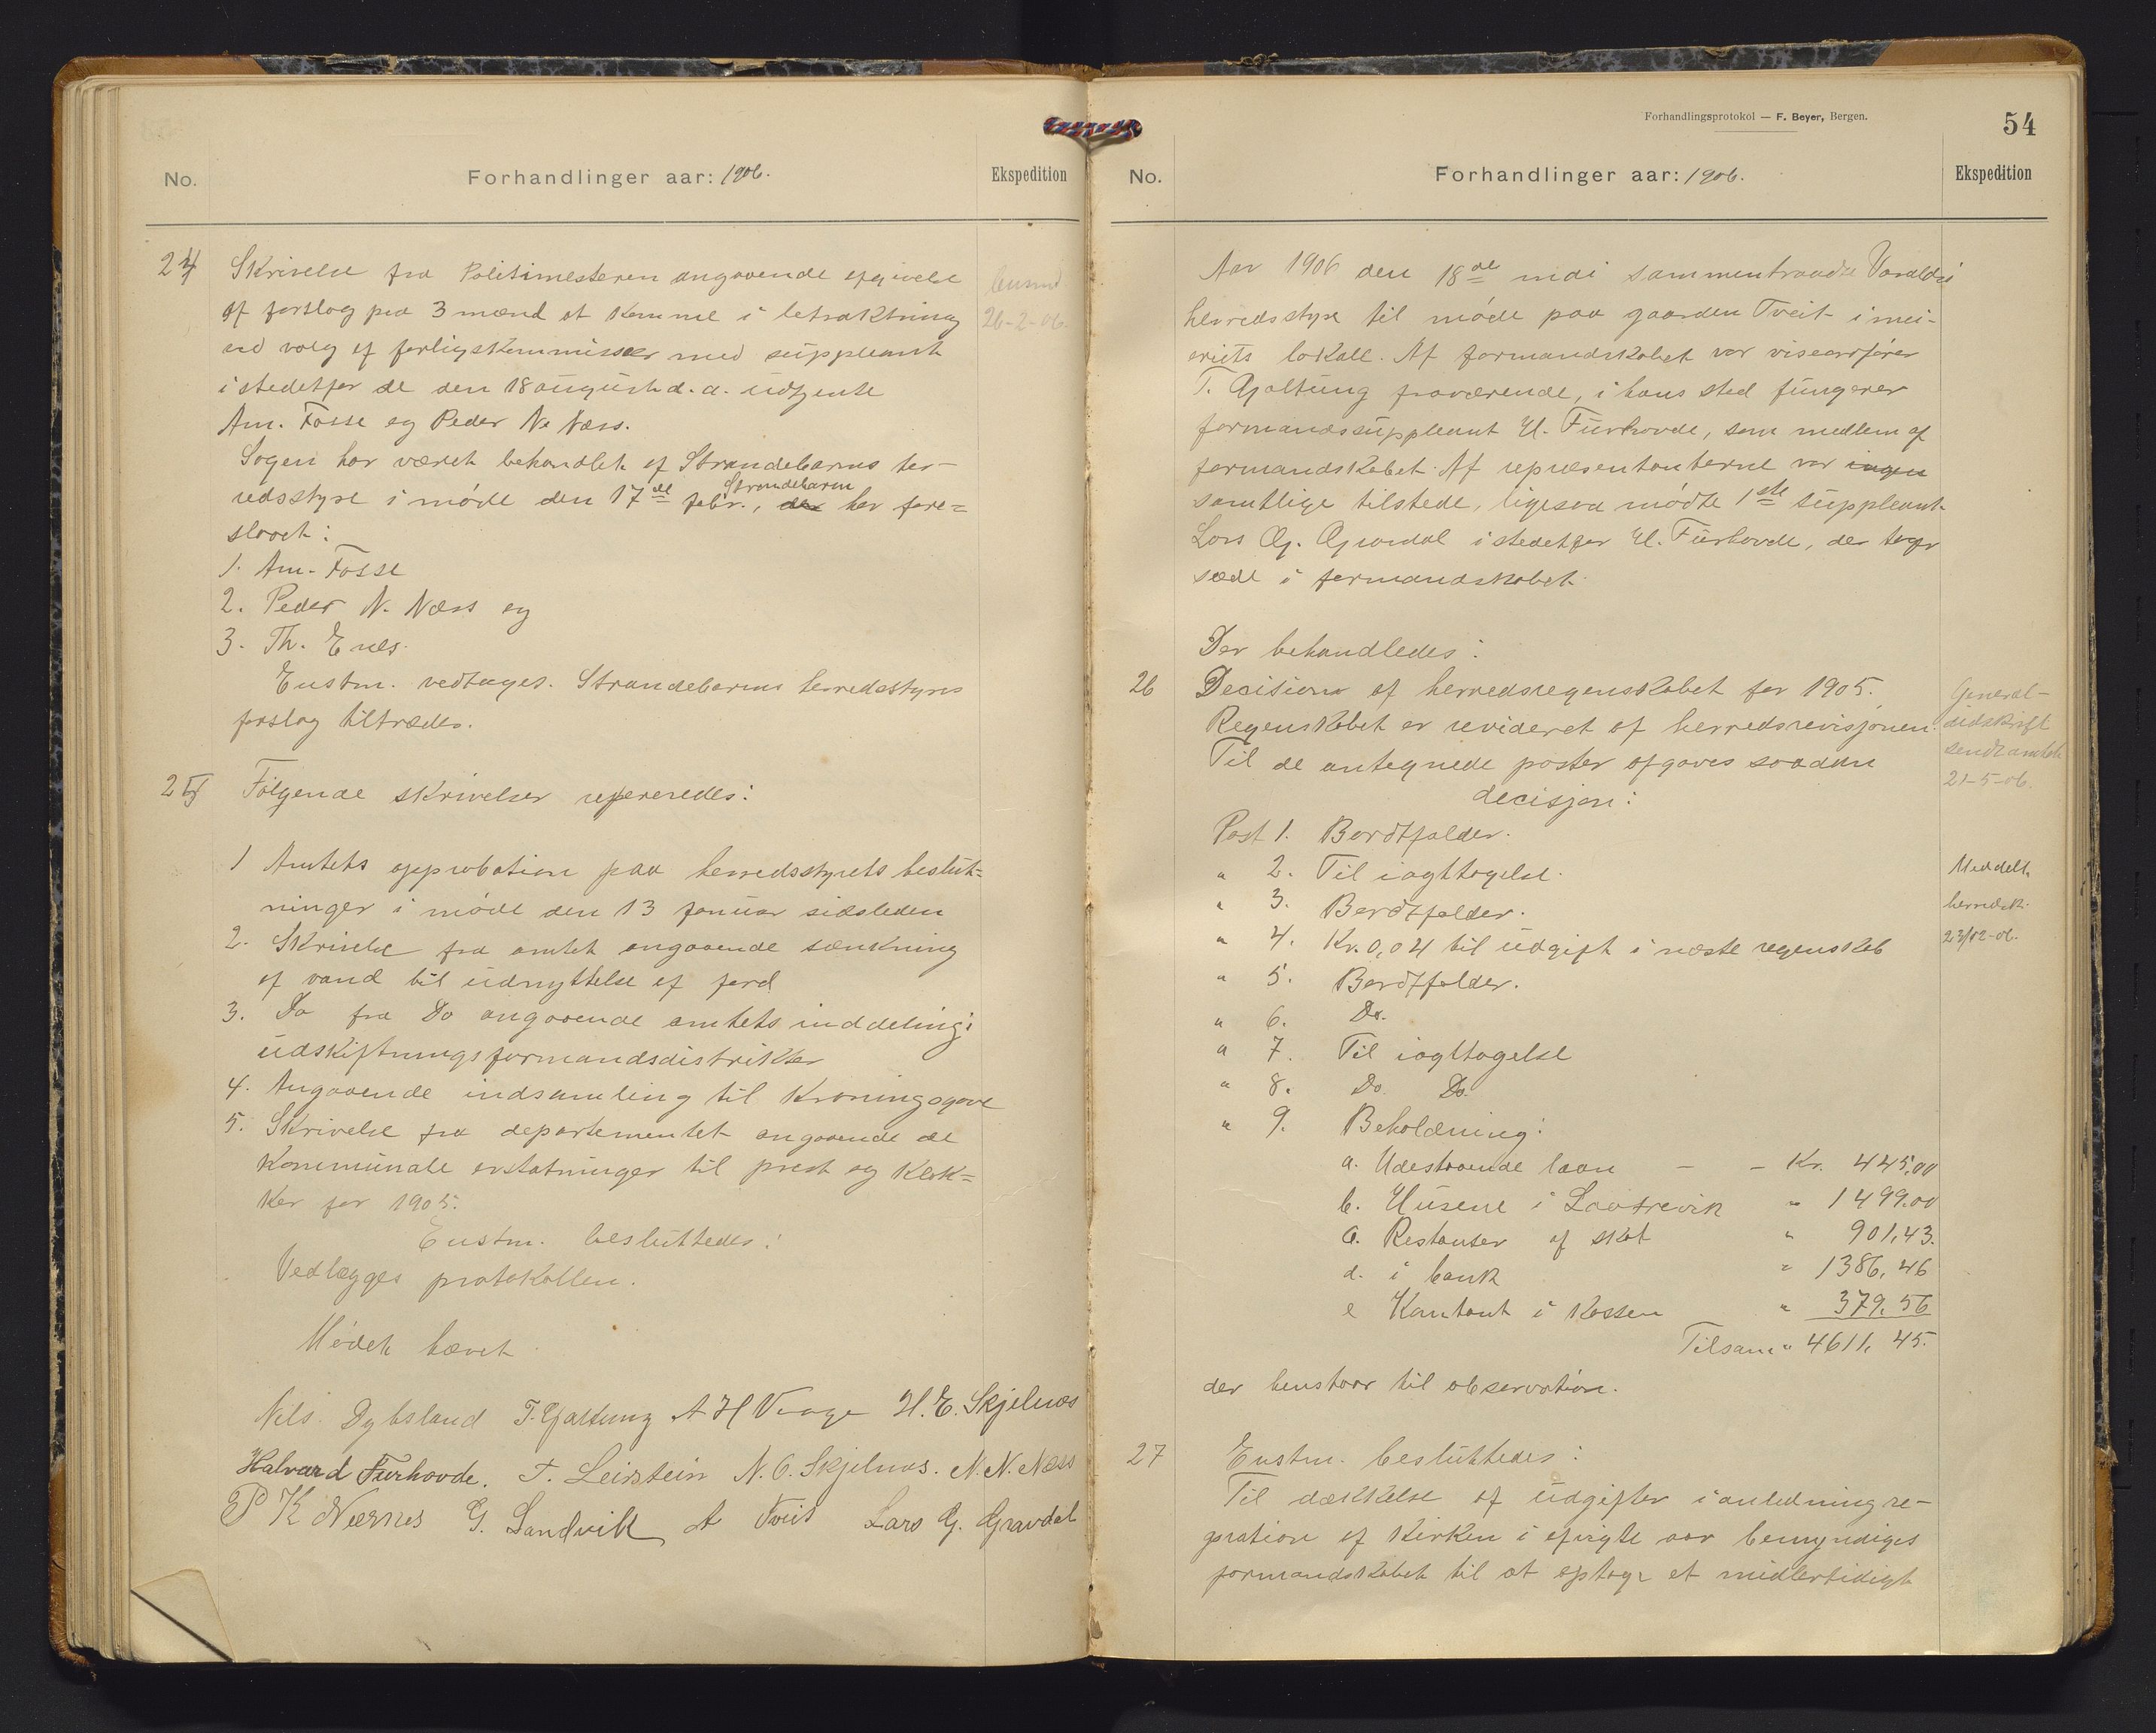 No.
Forhandlinger aar: 1906.
Ekspedition
24
Skrivelse fra Politimesteren angaaende opgivelse
af forslag paa 3 mænd at komme i betraktning
ved valg af forligskommissær med suppleant
i stedetfor de den 18 august d. a. udtjente
Am. Fosse og Peder N. Næss.
Sagen har været behandlet af Strandebarms her-
redsstyre i møde den 17de febr., Strandebarm har fore-
slaaet:
1. Am. Fosse
2. Peder N. Næss og
3. Th. Enes.
Enstm. vedtages. Strandebarms herredsstyres
forslag tiltrædes.
26-2-06.
25
Følgende skrivelser refereredes:
1 Amtets approbation paa herredsstyrets beslut-
ninger i møde den 13 januar sidsleden
2. Skrivelse fra amtet angaaende sænkning
af vand til udnyttelse af jord
3. Do fra Do angaaende amtets inddeling i
udskiftningsformandsdistrikter
4. Angaaende indsamling til Kroningsgave
5. Skrivelse fra departementet angaaende de
kommunale erstatninger til prest og klok-
ker for 1905.
Enstm. besluttedes:
Vedlægges protokollen.
Mødet hævet
Nils Dybsland T. Gjaltung A H Vaage H. E. Skjelnæs
Halvard Furhovde. T. Leirstein N. O. Skjelnæs. N. N. Næss
P K Nernes G. Sandvik A Tveit Lars G. Gravdal
Forhandlingsprotokol — F. Beyer, Bergen.
54
No.
Forhandlinger aar: 1906.
Ekspedition
Aar 1906 den 18de mai sammentraadte Varaldsø
herredsstyre til møde paa gaarden Tveit i mei-
eriets lokale. Af formandskabet var viseordfører
T. Gjaltung fraværende, i hans sted fungerer
formandssuppleant H. Furhovde, som medlem af
formandskabet. Af repræsentanterne var ingen
samtlige tilstede, ligesaa mødte 1ste suppleant
Lars G. Gravdal i stedetfor H. Furhovde, der tager
sæde i formandskabet.
Der behandledes:
26
Decision af herredsregnskabet for 1905.
Regenskabet er revideret af herredsrevisjonen.
Til de antegnede poster afgaves saadan
decisjon:
General-
udskrift
sendt amtet
21-5-06.
Post 1. Bortfalder.
" 2. Til iagttagelse.
" 3. Bortfalder.
" 4. Kr. 0,04 til udgift i næste regenskab
" 5. Bortfalder.
" 6. Do.
" 7. Til iagttagelse
" 8. Do. Do.
" 9. Beholdning:
a. Udestaaende laan - - Kr. 445,00
b. Husene i Laatrevik " 1499.00
c. Restanser af skat " 901,43.
d. i bank " 1386,46
e Kontant i kassen " 379.56
Tilsam. " 4611,45.
der henstaar til observation.
Meddelt
herredsk.
23/12-06.
27
Enstm. besluttedes:
Til dækkelse af udgifter i anledning re-
pration af kirken i afvigte aar bemyndiges
formandskabet til at optage et midlertidigt